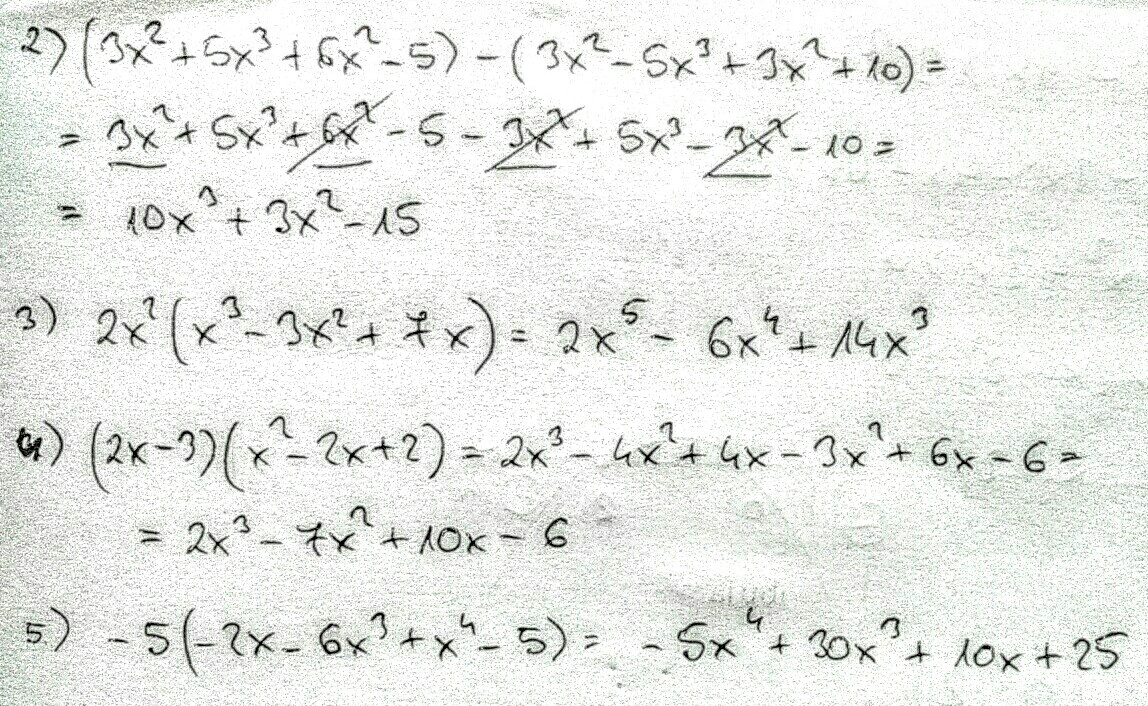 2) (3x² + 5x³ + 6x² - 5) - (3x² - 5x³ + 3x² + 10) =
= 3x² + 5x³ + 6x² - 5 - 3x² + 5x³ - 3x² - 10 =
= 10x³ + 3x² - 15
3) 2x² (x³ - 3x² + 7x) = 2x⁵ - 6x⁴ + 14x³
4) (2x-3)(x² - 2x+2) = 2x³ - 4x² + 4x - 3x² + 6x - 6 =
= 2x³ - 7x² + 10x - 6
5) -5(-2x - 6x³ + x⁴ - 5) = -5x⁴ + 30x³ + 10x + 25